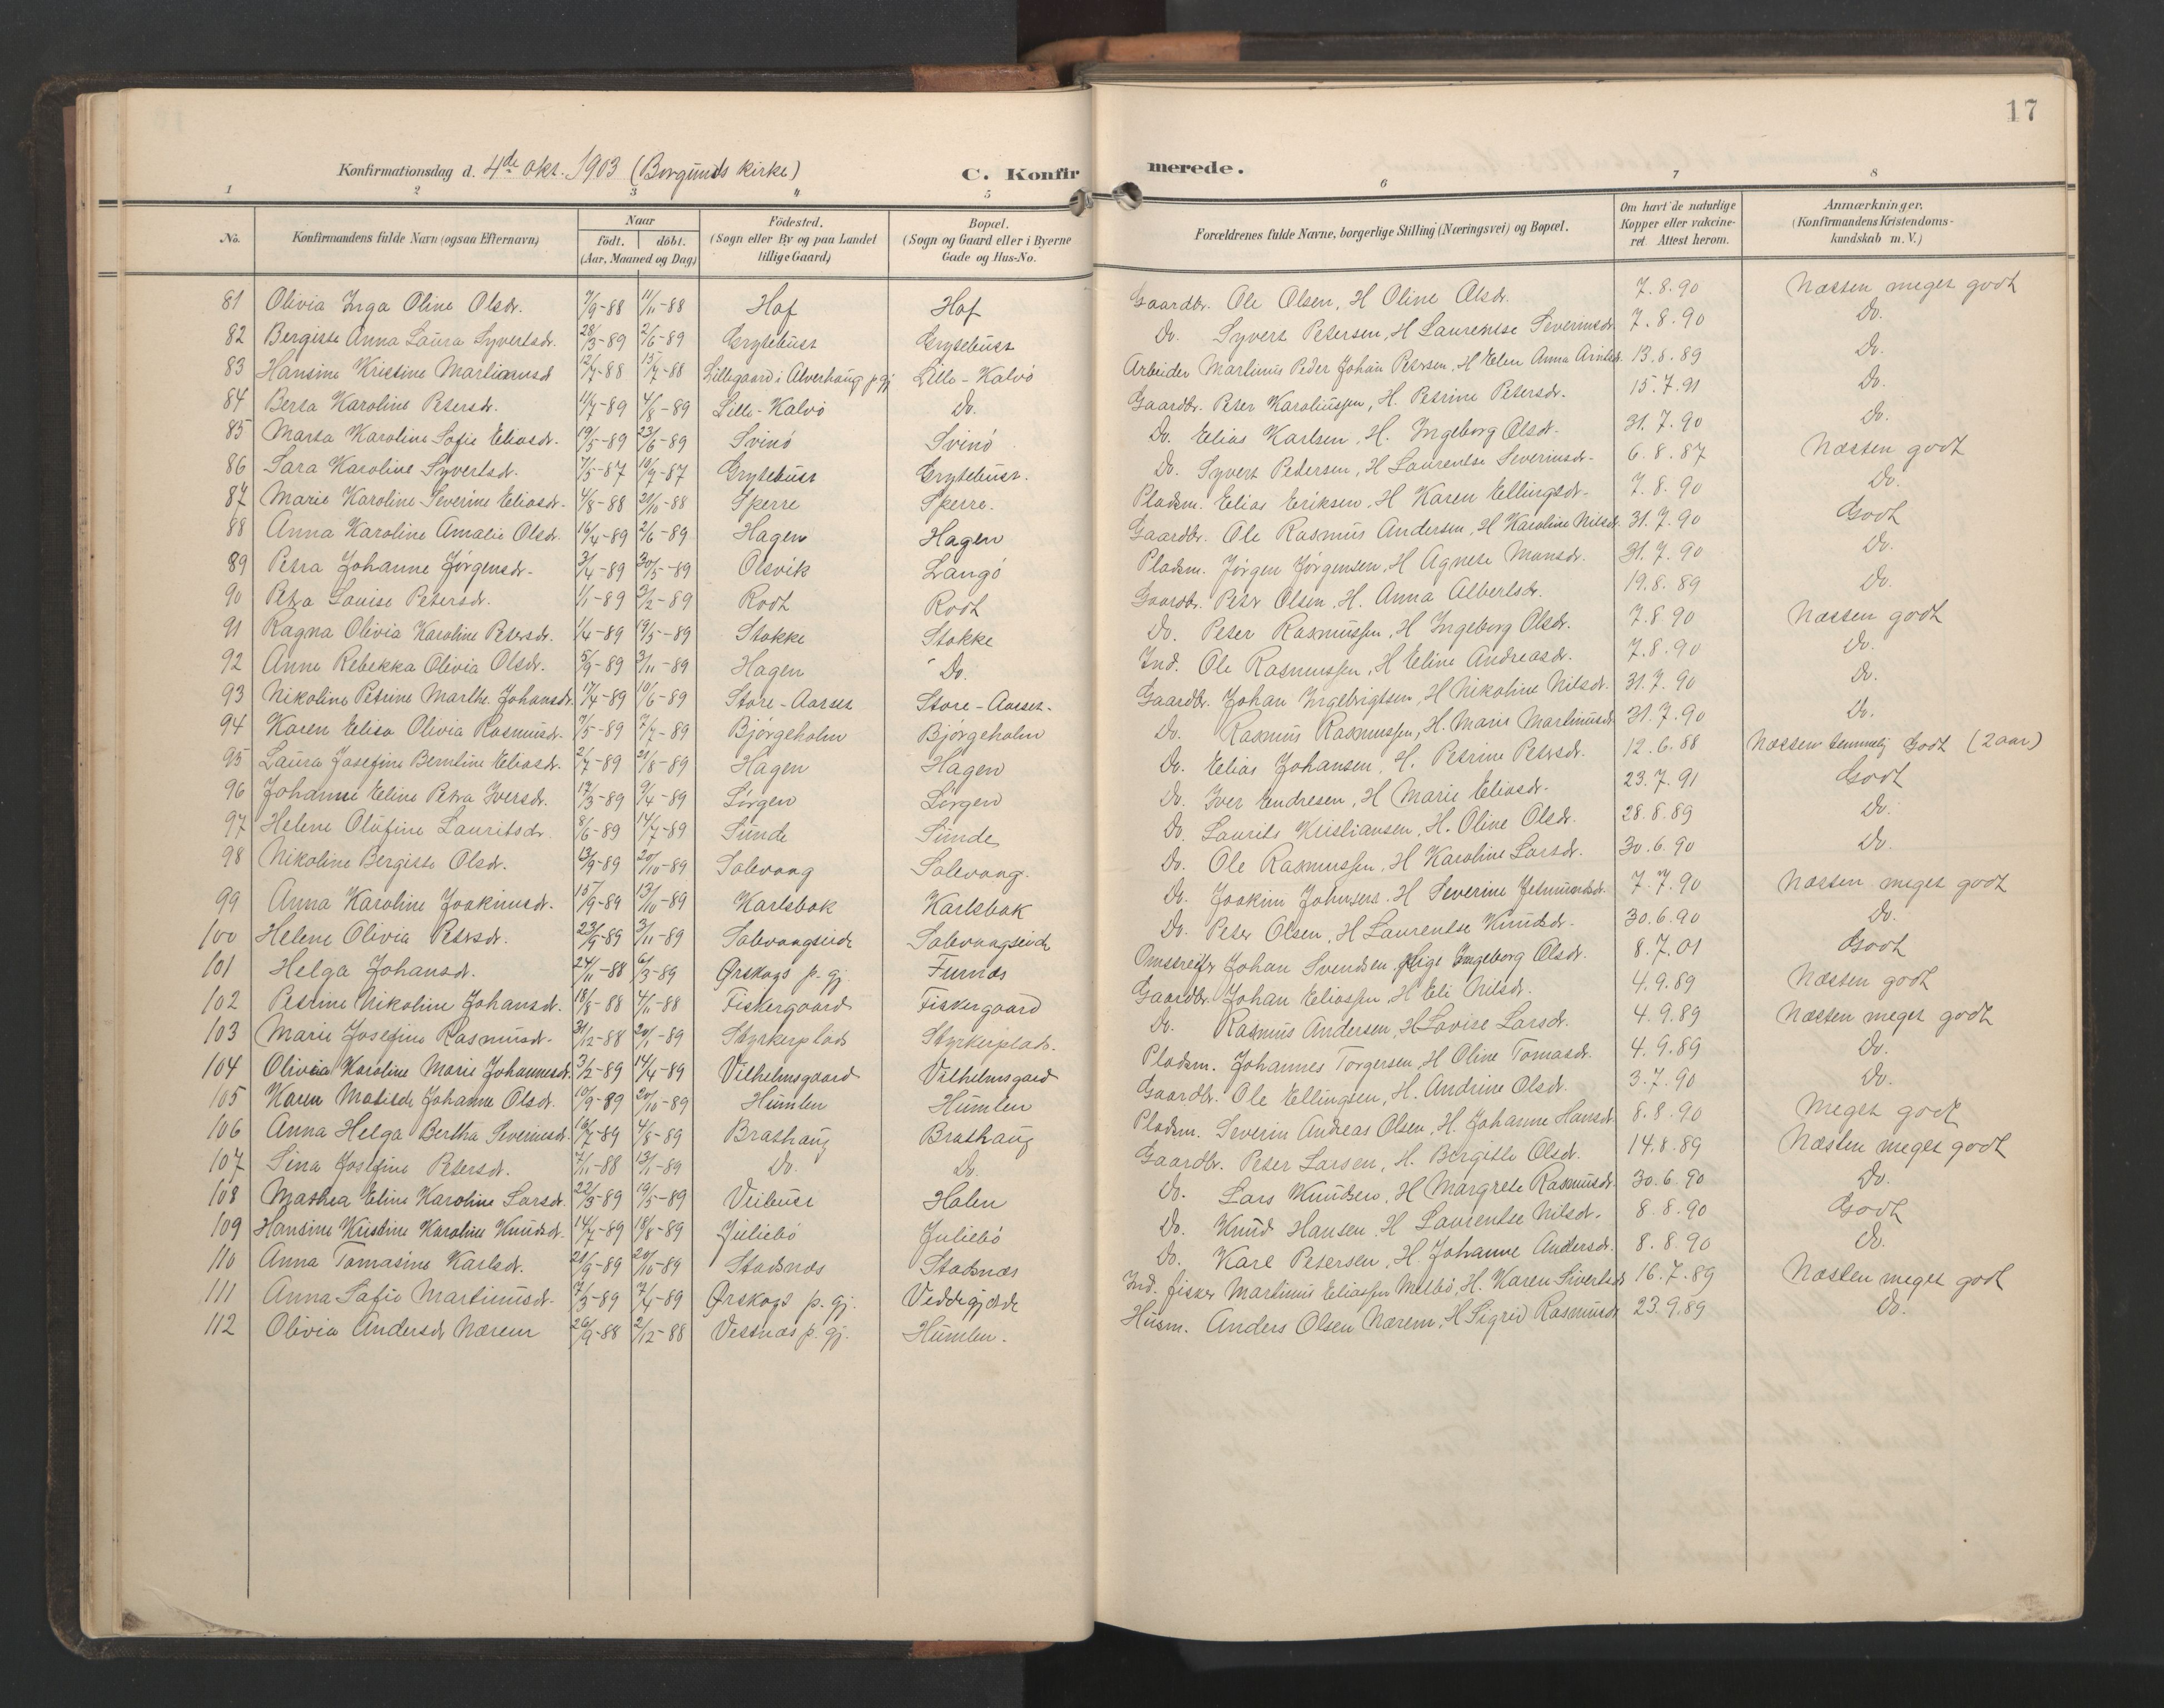 17
Konfirmationsdag d. 4de okt. 1903 (Borgunds kirke) C. Konfirmerede.
1 2 3 4 5 6 7 8
No. Konfirmandens fulde Navn (ogsaa Efternavn) Naar født. døbt. (Aar, Maaned og Dag) Fødested. (Sogn eller By og paa Landet tillige Gaard) Bopæl. (Sogn og Gaard eller i Byerne Gade og Hus-No. Forældrenes fulde Navne, borgerlige Stilling (Næringsvei) og Bopæl. Om havt de naturlige Kopper eller vakcineret. Attest herom. Anmærkninger. (Konfirmandens Kristendomskundskab m. V.)
81 Olivia Inga Oline Olsdr. 7/9-88 11/11-88 Hof Hof Gaardbr. Ole Olsen, H Oline Olsdr. 7.8.90 Næsten meget godt
82 Bergitte Anna Laura Syvertsdr. 28/3-89 2/6-89 Grytebust Grytebust Do. Syvert Petersen, H Laurentse Severinsdr. 7.8.90 Do.
83 Hansine Kristine Martianusd 12/7-88 15/7-88 Lillegaard i Alverhaug p gj Lille-Kalvø Arbeider Martinus Peder Johan Petersen, H Elen Anna 13.8.89 Do.
84 Berta Karoline Petersdr. 11/7-89 4/8-89 Lille-Kalvø Do. Gaardbr. Peter Karoliussen, H. Petrine Petersdr. 15.7.91 Do.
85 Marta Karoline Sofie Eliasdr. 19/5-89 23/6-89 Svinø Svinø Do. Elias Karlsen, H. Ingeborg Olsdr. 31.7.90 Do.
86 Sara Karoline Syvertsd. 7/5-87 10/7-87 Grytebust Grytebust. Do. Syvert Pedersen, H Laurentse Severinsdr. 6.8.87 Næsten godt
87 Marie Karoline Severine Eliasdr. 4/8-88 21/10-88 Sperre Sperre. Pladsm. Elias Eriksen, H Karen Ellingsdr. 7.8.90 Do.
88 Anna Karoline Amalie Olsdr. 16/4-89 2/6-89 Hagen Hagen Gaardbr. Ole Rasmus Andersen, H Karoline Nilsdr. 31.7.90 Godt
89 Petra Johanne Jørgensdr. 3/4-89 30/5-89 Olsvik Langø Pladsm. Jørgen Jørgensen, H Agnete Monsdr. 31.7.90 Do.
90 Petra Louise Petersdr. 1/1-89 3/2-89 Rødt Rødt Gaardbr. Peter Olsen, H. Anna Albertsdr. 19.8.89 Do.
91 Ragna Olivia Karoline Petersdr. 1/4-89 19/5-89 Stokke Stokke Do. Peter Rasmussen, H Ingeborg Olsdr. 7.8.90 Næsten godt
92 Anne Rebekka Olivia Olsdr. 5/9-89 3/11-89 Hagen Do. Ind. Ole Rasmussen, H Eline Andreasdr. 7.8.90 Do.
93 Nikoline Petrine Marthe Johansdr. 17/4-89 10/6-89 Store-Aarset Store-Aarset. Gaardbr. Johan Ingebrigtsen, H Nikoline Nilsdr. 31.7.90 Do.
94 Karen Elisa Olivia Rasmusdr. 7/5-89 7/7-89 Bjørgeholm Bjørgeholm Do. Rasmus Rasmussen, H. Marie Martinusdr. 31.7.90 Do.
95 Laura Josefine Berntine Eliasdr. 2/7-89 21/8-89 Hagen Hagen Do. Elias Johansen, H. Petrine Petersdr. 12.6.88 Næsten temmelig Godt (2 aar)
96 Johanne Eline Petra Iversdr. 17/3-89 9/4-89 Lørgen Lørgen Do. Iver Endresen, H Marie Eliasdr. 23.7.91 Godt
97 Helene Olufine Lauritsdr. 8/6-89 14/7-89 Sunde Sunde Do. Laurits Kristiansen, H. Oline Olsdr. 28.8.89 Do.
98 Nikoline Bergitte Olsdr. 13/9-89 20/10-89 Solevaag Solevaag. Do. Ole Rasmussen, H Karoline Larsdr. 30.6.90 Do.
99 Anna Karoline Joakimsdr. 15/9-89 13/10-89 Karlsbak Karlsbak Do. Joakim Johnsen. H Severine Jetmundsdr. 7.7.90 Næsten meget godt
100 Helene Olivia Petersdr. 23/9-89 3/11-89 Solevaagseide Solevaagseide Do. Peter Olsen, H Laurentse Knudsdr. 30.6.90 Do.
101 Helga Johansdr. 24/11-88 6/3-89 Ørskogs p. gj. Furnæs Omstreifer Johan Svendsen, Pige Ingeborg Olsdr. 8.7.01 Godt
102 Petrine Nikoline Johansdr. 18/8-88 4/11-88 Fiskergaard Fiskergaard Gaardbr. Johan Eliassen H Eli Nilsdr. 4.9.89 Næsten godt
103 Marie Josefine Rasmusdr. 31/12-88 20/1-89 Styrkerplads Styrkerplads. Do. Rasmus Andersen, H Lovise Larsdr. 4.9.89 Næsten meget godt
104 Olivia Karoline Marie Johannesdr. 3/2-89 14/4-89 Vilhelmsgaard Vilhelmsgaard Pladsm. Johannes Torgersen, H Oline Tomasdr. 4.9.89 Do.
105 Karen Matilde Johanne Olsdr. 10/9-89 20/10-89 Humlen Humlen Gaardbr. Ole Ellingsen, H. Andrine Olsdr. 3.7.90 Do.
106 Anna Helga Bertha Severinsdr. 16/7-89 4/8-89 Brathaug Brathaug Pladsm. Severin Andreas Olsen, H. Johanne Hansdr. 8.8.90 Meget godt
107 Sina Josefine Petersdr. 7/11-88 13/1-89 Do. Do. Gaardbr. Peter Larsen, H. Bergitte Olsdr. 14.8.89 Næsten meget godt
108 Mathea Eline Karoline Larsdr. 22/3-89 19/5-89 Veibust Holen Do. Lars Knudsen, H Margrete Rasmusdr. 30.6.90 Do.
109 Hansine Kristine Karoline Knudsdr. 14/7-89 18/8-89 Juliebø Juliebø Do. Knud Hansen, H Laurentse Nilsdr. 8.8.90 Godt
110 Anna Tomasine Karlsdr. 21/9-89 20/10-89 Stadsnæs Stadsnæs Do. Karl Petersen, H. Johanne Andersdr. 8.8.90 Do.
111 Anna Sofie Martinusdr. 7/3-89 7/4-89 Ørskogs p. gj. Veddegjerde Ind. fisker Martinus Eliassen Melbø, H. Karen Sivertsdr 16.7.89 Næsten meget godt
112 Olivia Andersdr Nærem 26/9-88 2/12-88 Vestnæs p. gj. Humlen. Husm. Anders Olsen Nærem, H Sigrid Rasmusdr 23.9.89 Do.